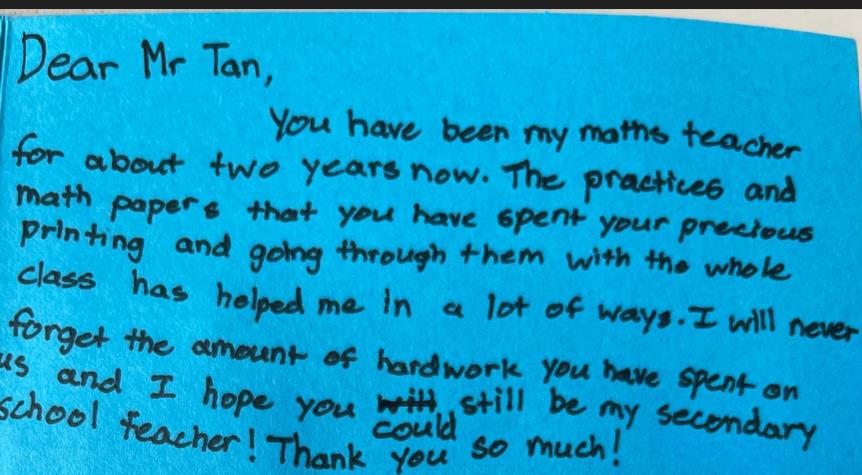 Dear Mr Tan,
You have been my maths teacher
for about two years now. The practices and
math papers that you have spent your precious
printing and going through them with the whole
class has helped me in a lot of ways. I will never
forget the amount of hardwork you have spent on
us and I hope you will still be my secondary
could
school teacher! Thank you so much!